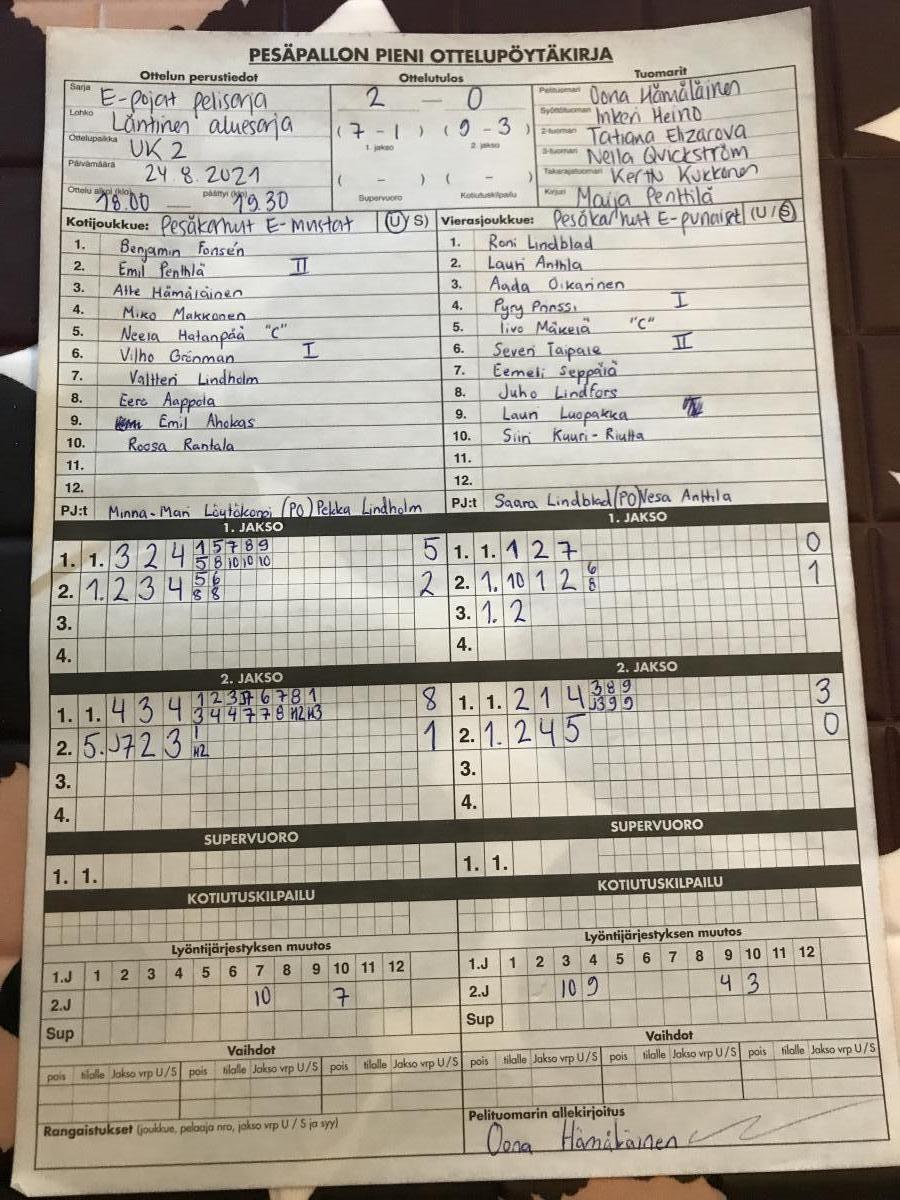 PESÄPALLON PIENI OTTELUPÖYTÄKIRJA
Ottelun perustiedot Ottelutulos Tuomarit
Sarja E-pojat pelisarja
Lohko Läntinen aluesarja
Ottelupaikka UK 2
Päivämäärä 24.8.2021
Ottelu alkoi (klo) 18.00 päättyi (klo) 19.30
2 – 0
(7-1) (9-3)
1. jakso 2. jakso
( - ) ( - )
Supervuoro Kotiutuskilpailu
Pelituomari Oona Hämäläinen
Syöttötuomari Inkeri Heino
2-tuomari Tatiana Elizarova
3-tuomari Nella Qvickström
Takarajatuomari Kerttu Kukkonen
Kirjuri Maija Penttilä
Kotijoukkue: Pesäkarhut E-mustat (U/S)
1. Benjamin Forsén
2. Emil Penttilä II
3. Atte Hämäläinen
4. Miko Makkonen
5. Neela Hatanpää "C"
6. Vilho Grönman I
7. Valtteri Lindholm
8. Eero Aappola
9. Emil Ahokas
10. Roosa Rantala
11.
12.
PJ:t Minna-Mari Löytökorpi (PO) Pekka Lindholm
Vierasjoukkue: Pesäkarhut E-punaiset (U/S)
1. Roni Lindblad
2. Lauri Anttila
3. Aada Oikarinen
4. Pyry Ponssi I
5. Iivo Mäkelä "C"
6. Severi Taipale II
7. Eemeli Seppälä
8. Juho Lindfors
9. Lauri Luopakka
10. Siiri Kauri-Riutta
11.
12.
PJ:t Saara Lindblad (PO) Vesa Anttila
1. JAKSO
1. 1. 3 2 4 1 5 7 8 9 5
5 8 10 10 10
2. 1. 2 3 4 5 6 2
8 8
3.
4.
1. JAKSO
1. 1. 1 2 7 0
2. 1. 10 1 2 6 1
8
3. 1. 2
4.
2. JAKSO
1. 1. 4 3 4 1 2 3 6 7 8 1 8
3 4 4 7 7 8
2. 5. J7 2 3 1 1
3.
4.
2. JAKSO
1. 1. 2 1 4 3 8 9 3
J3 9 9
2. 1. 2 4 5 0
3.
4.
SUPERVUORO
1. 1.
SUPERVUORO
1. 1.
KOTIUTUSKILPAILU
KOTIUTUSKILPAILU
Lyöntijärjestyksen muutos
1.J 1 2 3 4 5 6 7 8 9 10 11 12
2.J 10 7
Sup
Lyöntijärjestyksen muutos
1.J 1 2 3 4 5 6 7 8 9 10 11 12
2.J 10 9 4 3
Sup
Vaihdot
pois tilalle Jakso vrp U/S pois tilalle Jakso vrp U/S pois tilalle Jakso vrp U/S
Vaihdot
pois tilalle Jakso vrp U/S pois tilalle Jakso vrp U/S pois tilalle Jakso vrp U/S
Rangaistukset (joukkue, pelaaja nro, jakso vrp U / S ja syy)
Pelituomarin allekirjoitus
Oona Hämäläinen